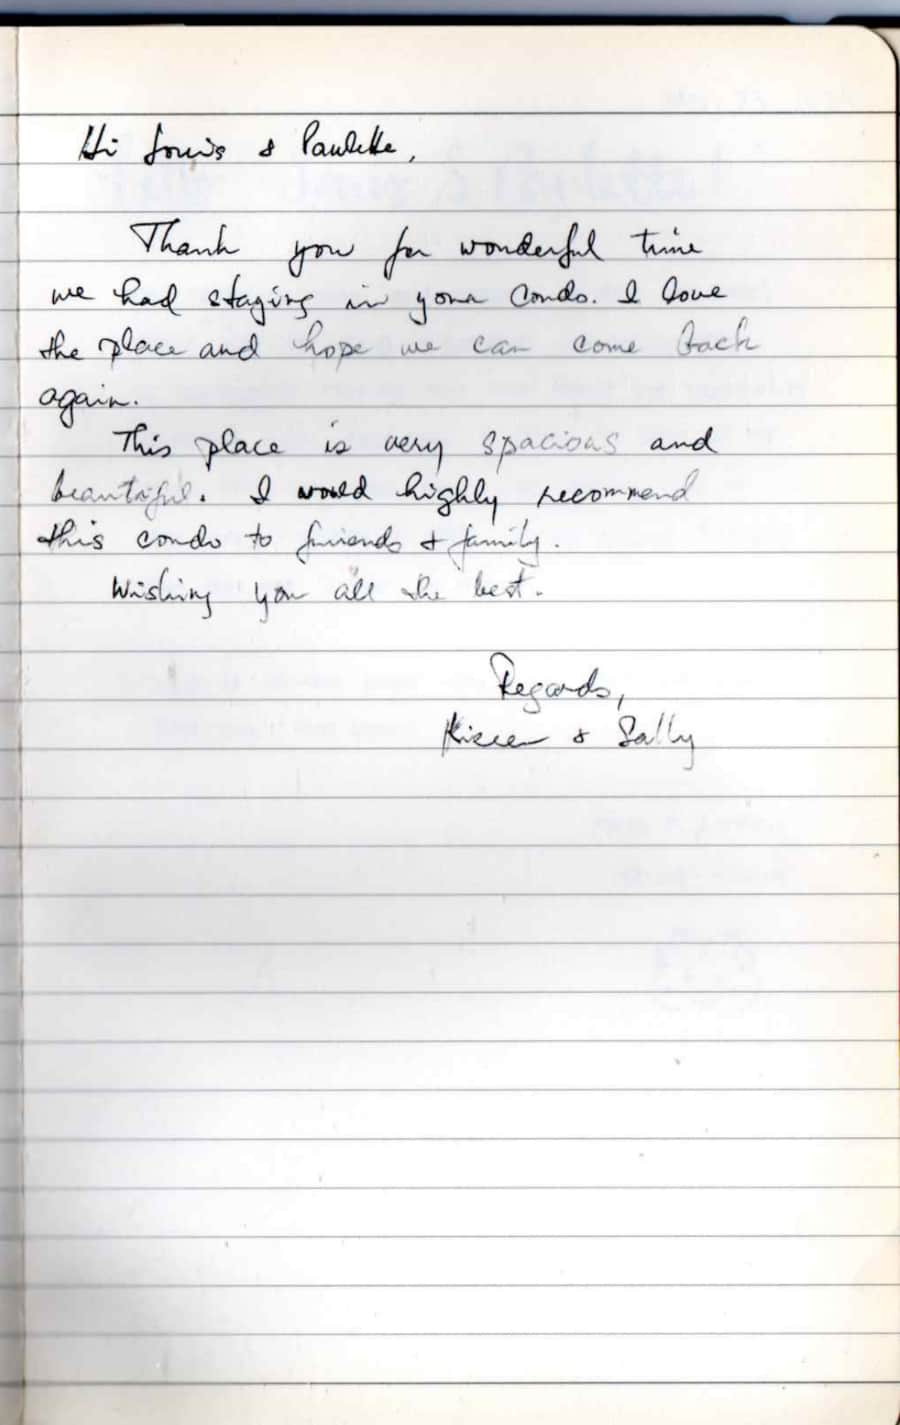 Hi Louis & Paulette,
Thank you for wonderful time
we had staying in your condo. I love
the place and hope we can come back
again.
This place is very spacious and
beautiful. I would highly recommend
this condo to friends & family.
Wishing you all the best.
Regards,
& Sally